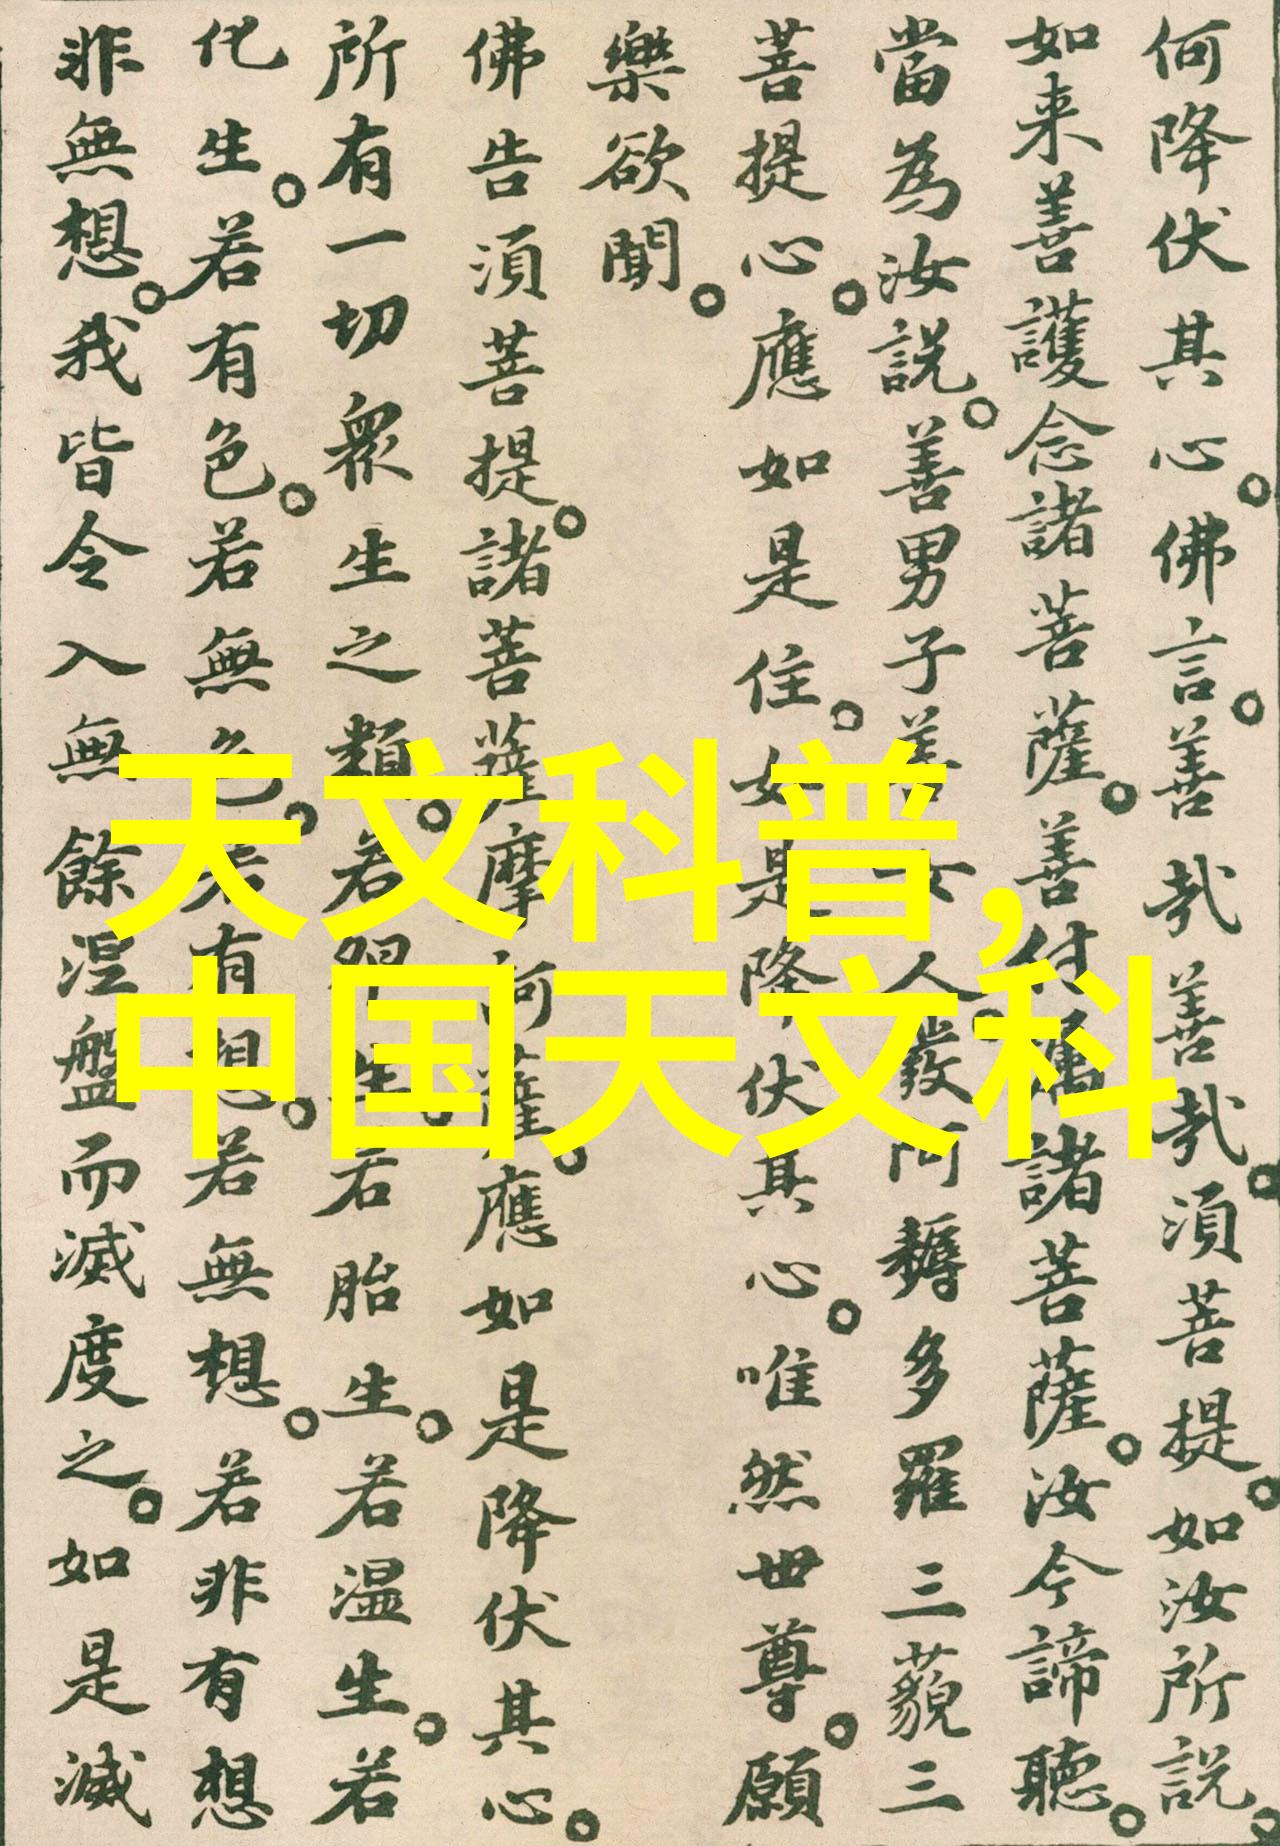 何降伏其心佛言善哉善哉湏菩提如汝所説
如来善護念諸菩薩善付属諸菩薩汝今諦聽
當為汝説善男子善女人發阿耨多羅三藐三
菩提心應如是住如是降伏其心唯然世尊願
樂欲聞
佛告湏菩提諸菩薩摩訶薩應如是降伏其心
所有一切眾生之類若卵生若胎生若温生若
化生若有色若無色若有想若無想若非有想
非無想我皆令入無餘涅盤而滅度之如是滅
天文科普,
中国天文科